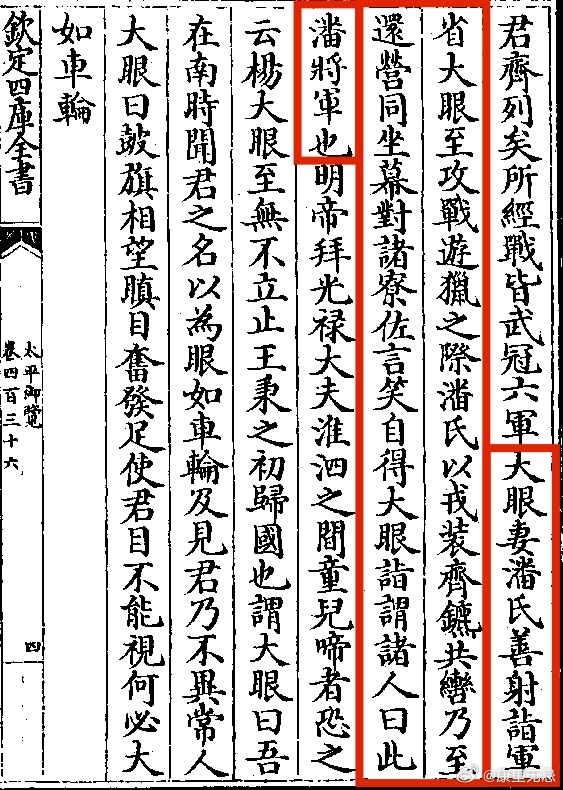 君齊列矣所經戰皆武冠六軍大眼妻潘氏善射詣軍
省大眼至攻戰遊獵之際潘氏以戎裝齊鑣共轡乃至
還營同坐幕對諸寮佐言笑自得大眼詣謂諸人曰此
潘將軍也明帝拜光祿大夫淮泗之間童兒啼者恐之
云楊大眼至無不立止王秉之初歸國也謂大眼曰吾
在南時聞君之名以為眼如車輪及見君乃不異常人
大眼曰鼓旗相望瞋目奮發足使君目不能視何必大
如車輪
欽定四庫全書
太平御覽
卷四百三十六
四
@康里无忌